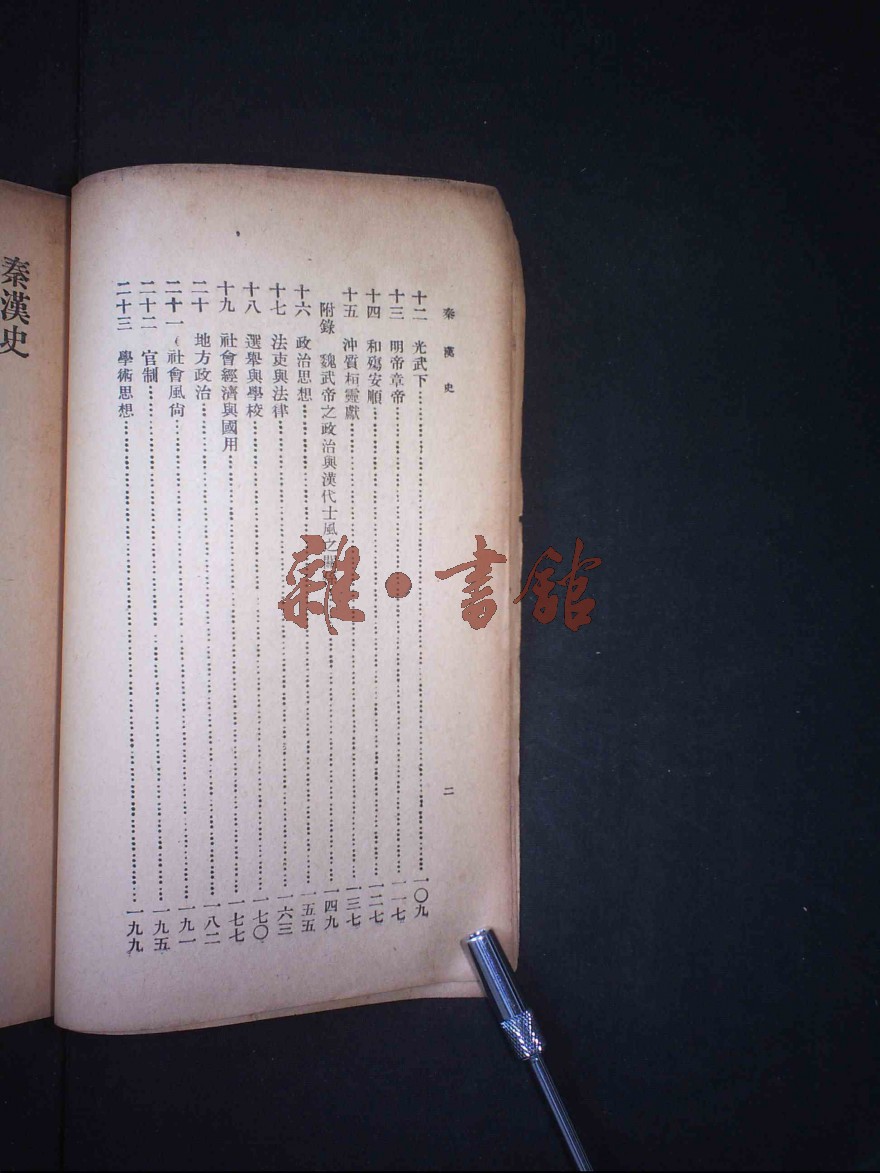 秦漢史
二
十二 光武下 一〇九
十三 明帝章帝 一一七
十四 和殤安順 一二七
十五 沖質桓靈獻 一三七
附錄 魏武帝之政治與漢代士風之關 一四九
十六 政治思想 一五五
十七 法吏與法律 一六三
十八 選舉與學校 一七〇
十九 社會經濟與國用 一七七
二十 地方政治 一八二
二十一 社會風尙 一九一
二十二 官制 一九五
二十三 學術思想 一九九
秦漢史
雜·書館